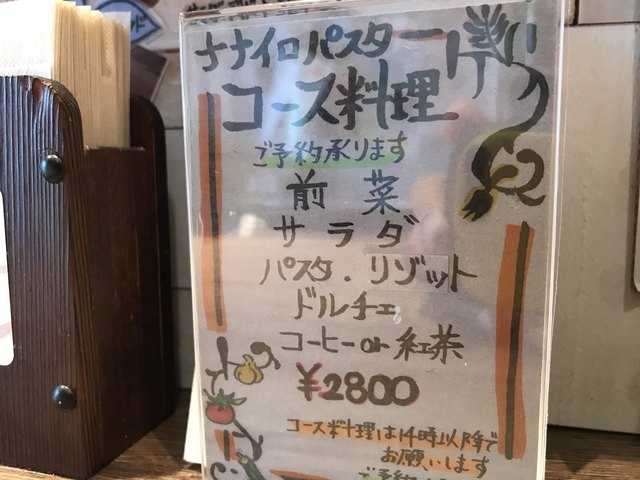 ナナイロパスター
コース料理
ご予約承ります
前菜
サラダ
パスタ．リゾット
ドルチェ
コーヒーor紅茶
¥2800
コース料理は14時以降で
お願いします